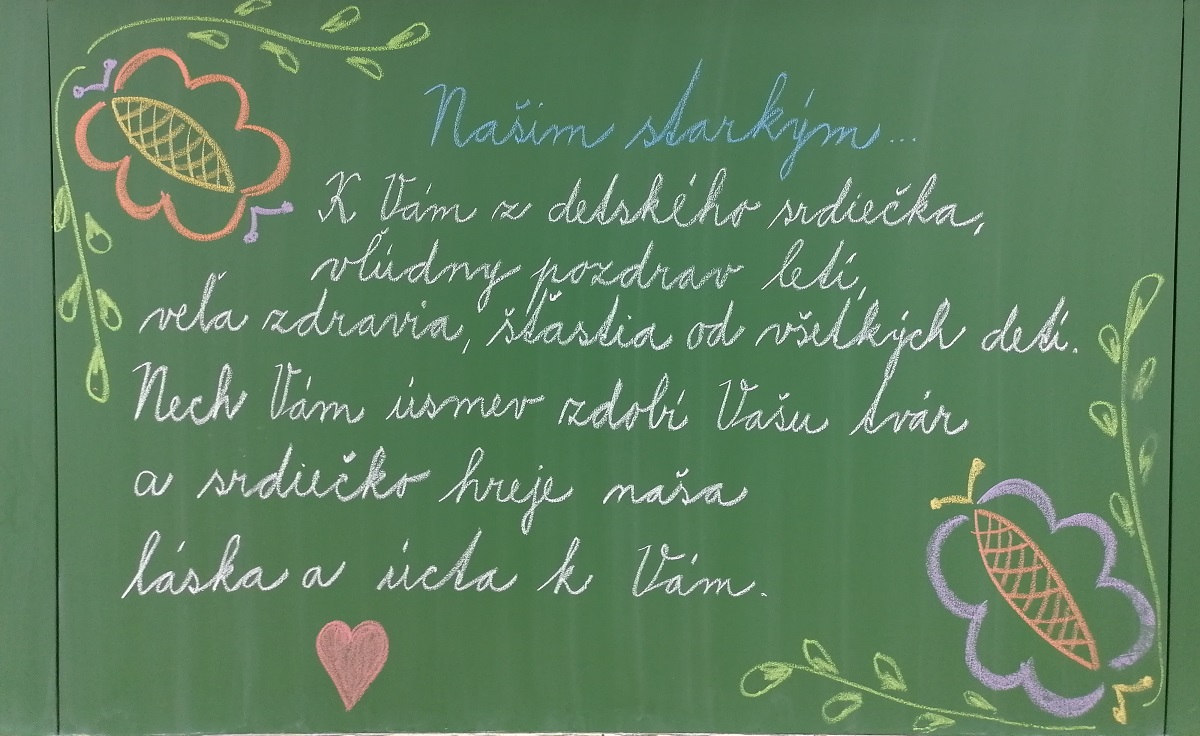 Našim starkým...
K Vám z detského srdiečka,
vľúdny pozdrav letí,
veľa zdravia, šťastia od všetkých detí.
Nech Vám úsmev zdobí Vašu tvár
a srdiečko hreje naša
láska a úcta k Vám.